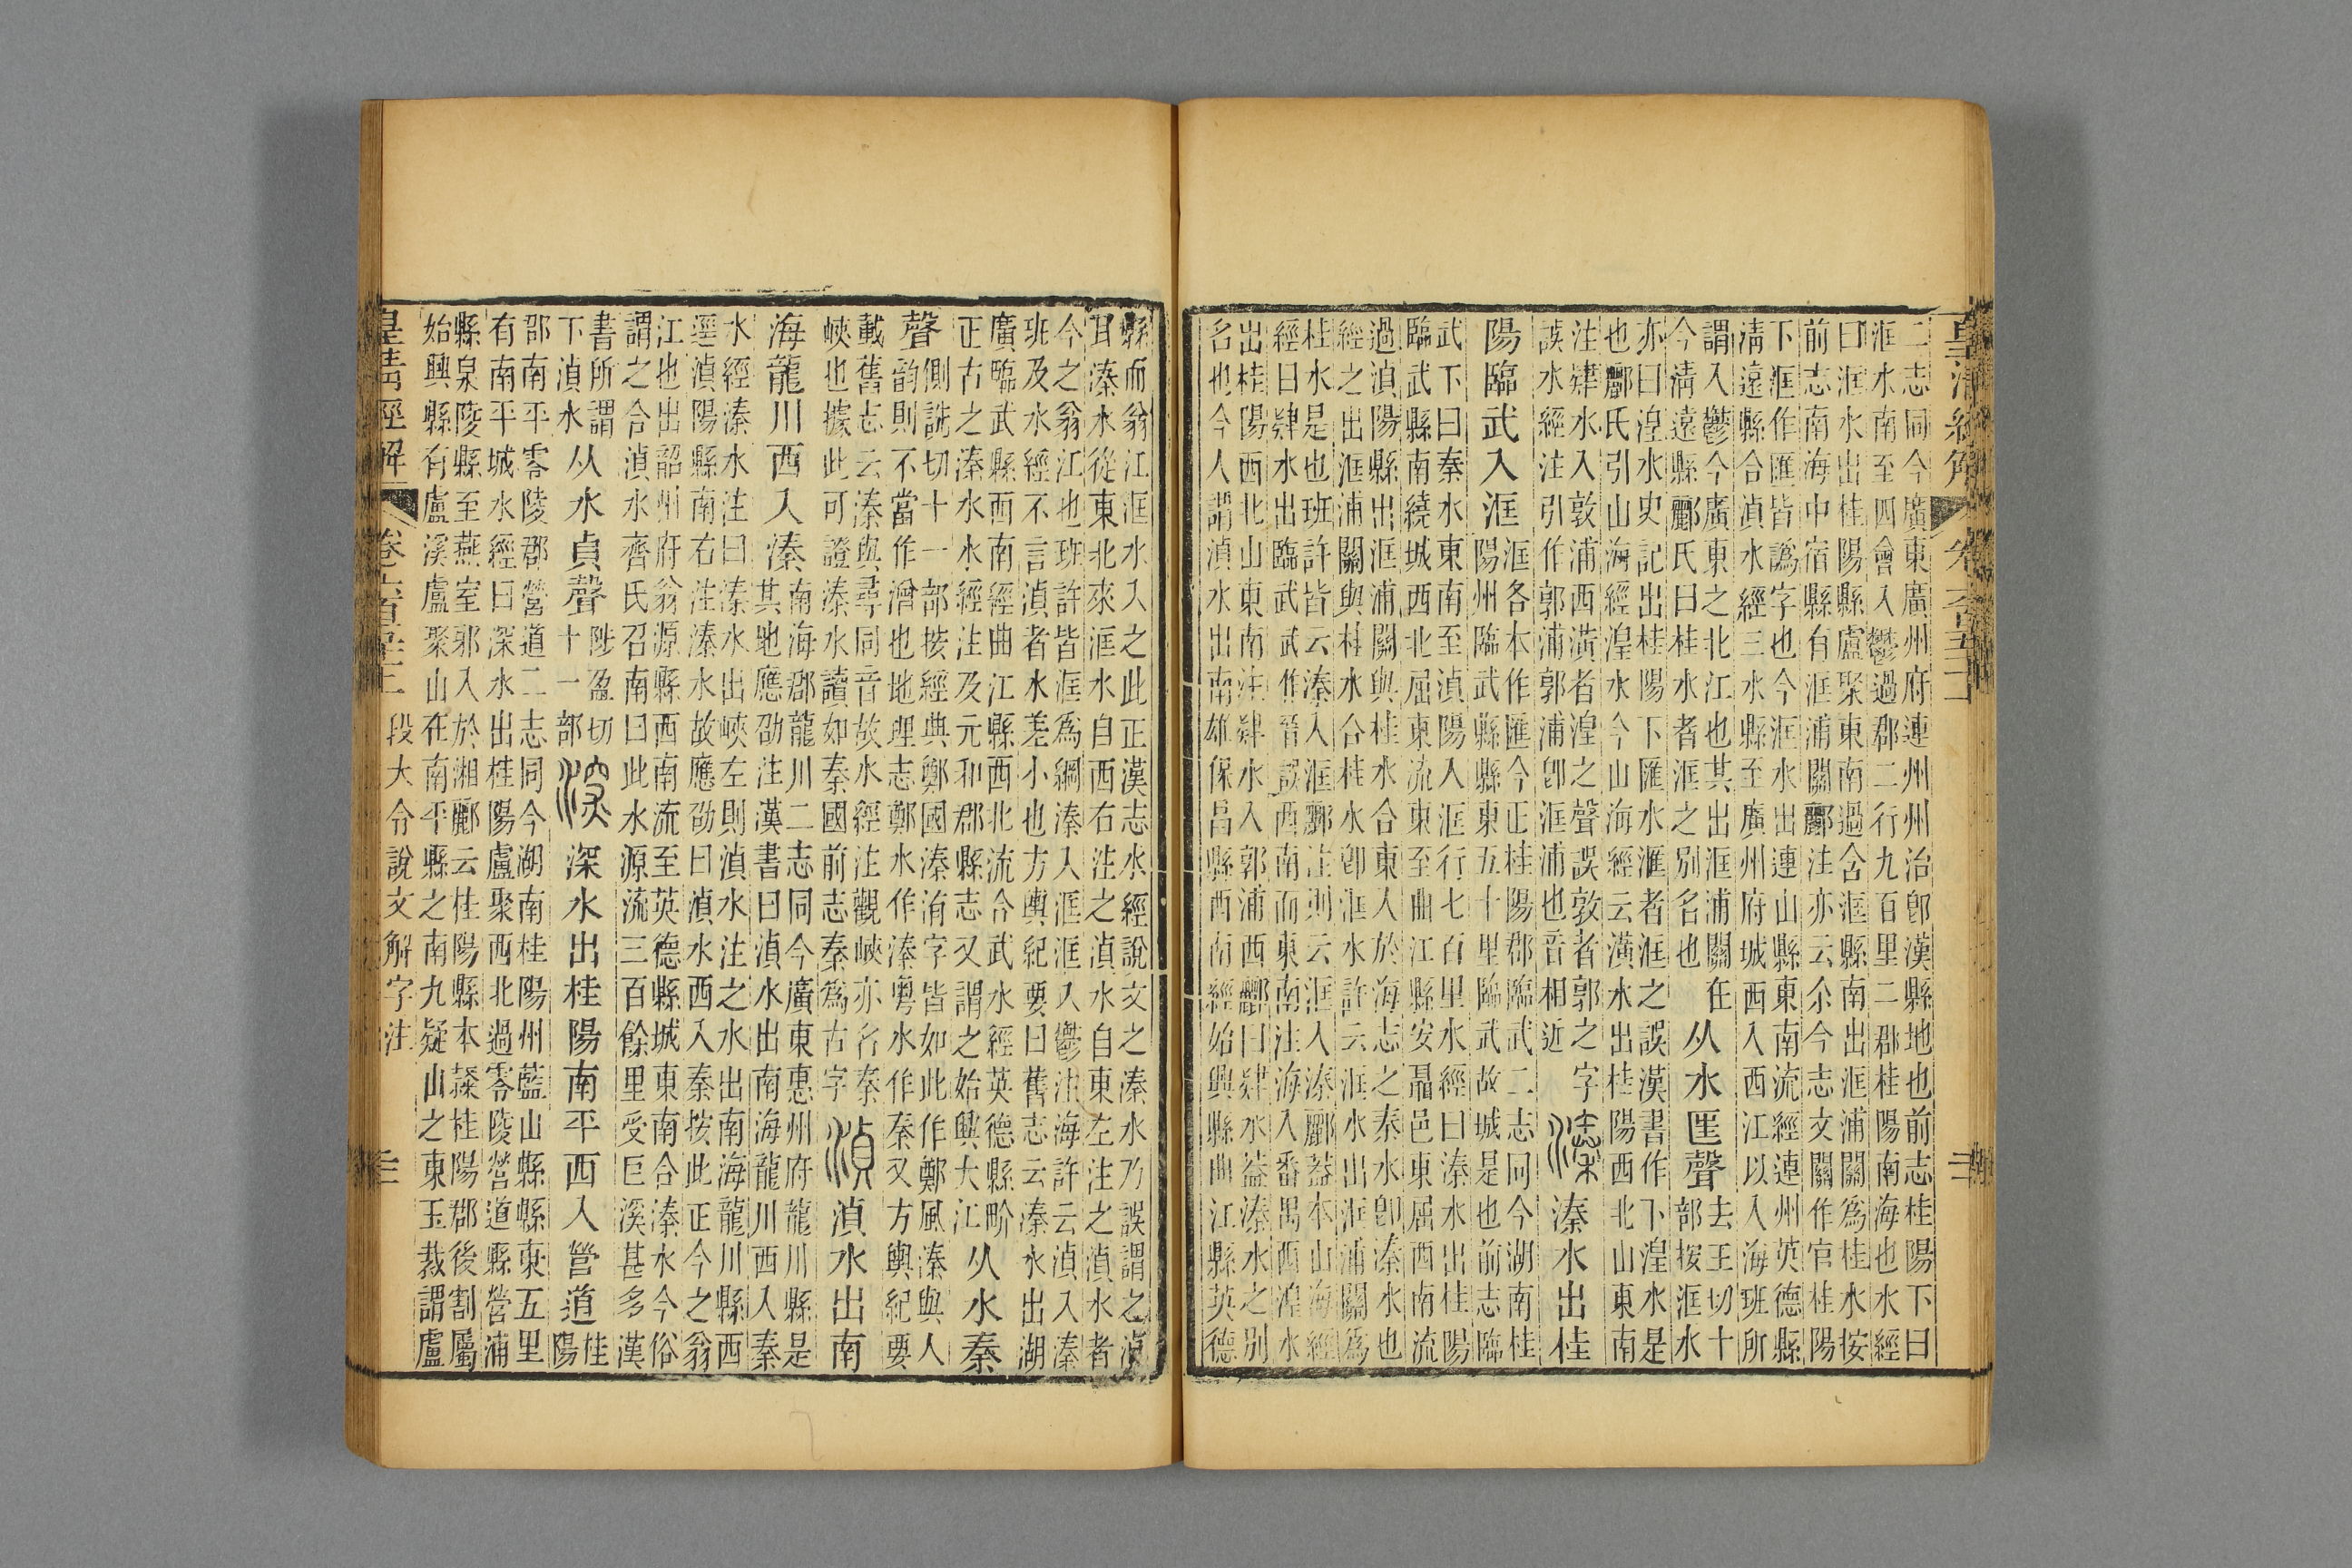 二志同今廣東廣州府連州州治卽漢縣地也前志桂陽下曰
洭水南至四會入鬱過郡二行九百里二郡桂陽南海也水經
曰洭水出桂陽縣盧聚東南過含洭縣南出洭浦關爲桂水按
前志南海中宿縣有洭浦關酈注亦云尒今志文關作官桂陽
下洭作匯皆譌字也今洭水出連山縣東南流經連州英德縣
淸遠縣合湞水經三水縣至廣州府城西入西江以入海班所
謂入鬱今廣東之北江也其出洭浦關在
今淸遠縣酈氏曰桂水者洭之別名也
从水匡聲
去王切十
部按洭水
亦曰湟水史記出桂陽下匯水滙者洭之誤漢書作下湟水是
也酈氏引山海經湟水今山海經云潢水出桂陽西北山東南
注肄水入敦浦西潢者湟之聲誤敦者郭之字
誤水經注引作郭浦郭浦卽洭浦也音相近
溱水出桂
陽臨武入洭
洭各本作匯今正桂陽郡臨武二志同今湖南桂
陽州臨武縣縣東五十里臨武故城是也前志臨
武下曰秦水東南至湞陽入洭行七百里水經曰溱水出桂陽
臨武縣南繞城西北屈東流東至曲江縣安聶邑東屈西南流
過湞陽縣出洭浦關與桂水合東入於海志之秦水卽溱水也
經之出洭浦關與桂水合桂水卽洭水許云洭水出洭浦關爲
桂水是也班許皆云溱入洭酈注則云洭入溱酈葢本山海經
經曰肄水出臨武武作晉誤西南而東南注海入番禺西湟水
出桂陽西北山東南注肄水入郭浦西酈曰肄水葢溱水之別
名也今人謂湞水出南雄保昌縣西南經始興縣曲江縣英德
縣而翁江洭水入之此正漢志水經說文之溱水乃誤謂之湞
耳溱水從東北來洭水自西右注之湞水自東左注之湞水者
今之翁江也班許皆洭爲綱溱入洭洭入鬱注海許云湞入溱
班及水經不言湞者水差小也方輿紀要曰舊志云溱水出湖
廣臨武縣西南經曲江縣西北流合武水經英德縣畍
正古之溱水水經注及元和郡縣志又謂之始興大江
从水秦
聲
側詵切十一部按經典鄭國溱洧字皆如此作鄭風溱與人
韵則不當作潧也地理志鄭水作溱粵水作秦又方輿紀要
載舊志云溱與尋同音故水經注觀峽亦名秦
峽也據此可證溱水讀如秦國前志秦爲古字
湞水出南
海龍川西入溱
南海郡龍川二志同今廣東惠州府龍川縣是
其地應劭注漢書曰湞水出南海龍川西入秦
水經溱水注曰溱水出峽左則湞水注之水出南海龍川縣西
逕湞陽縣南右注溱水故應劭曰湞水西入秦按此正今之翁
江也出韶州府翁源縣西南流至英德縣城東南合溱水今俗
謂之合湞水齊氏召南曰此水源流三百餘里受巨溪甚多漢
書所謂
下湞水
从水貞聲
陟盈切
十一部
深水出桂陽南平西入營道
桂
陽
郡南平零陵郡營道二志同今湖南桂陽州藍山縣縣東五里
有南平城水經曰深水出桂陽盧聚西北過零陵營道縣營浦
縣泉陵縣至燕室郭入於湘酈云桂陽縣本隸桂陽郡後割屬
始興縣有盧溪盧聚山在南平縣之南九疑山之東玉裁謂盧
段大令說文解字注